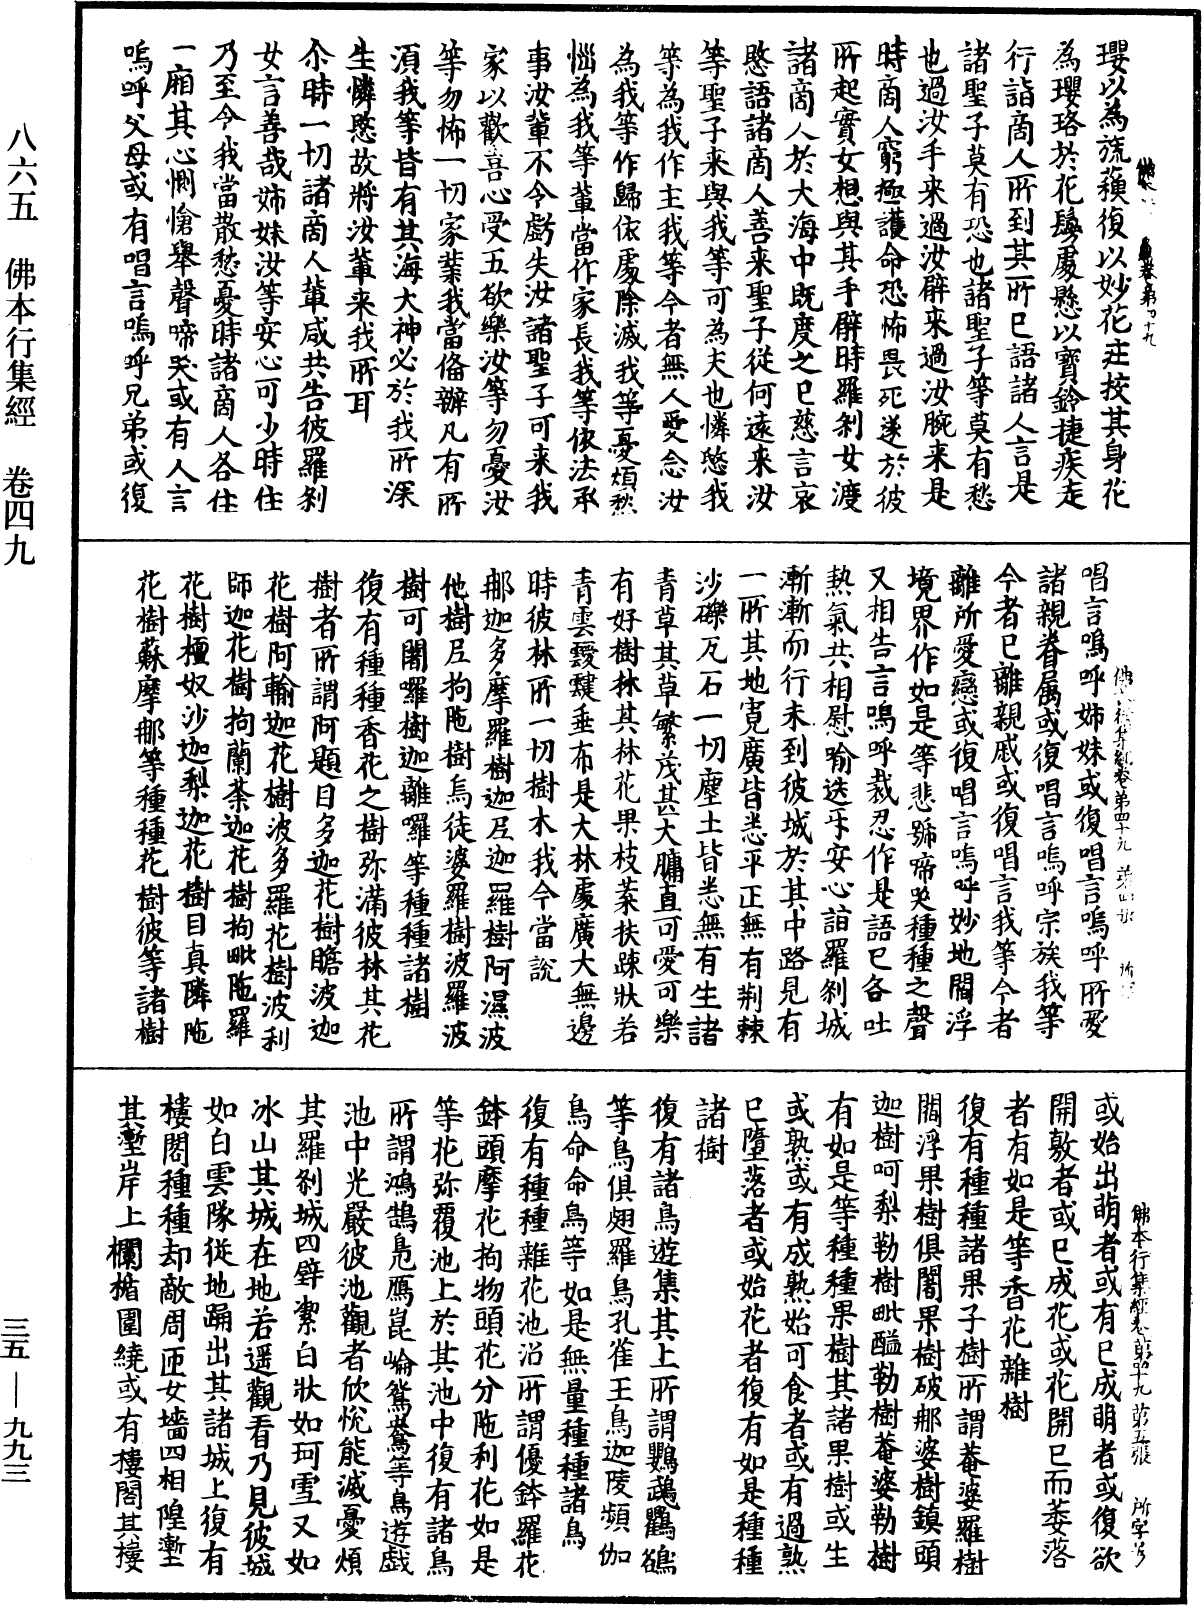 瓔以為旒蘇復以妙花庄挍其身花
為瓔珞於花鬘處懸以寶鈴捷疾走
行詣商人所到其所已語諸人言是
諸聖子莫有恐也諸聖子等莫有愁
也過汝手來過汝臂來過汝腕來是
時商人窮極護命恐怖畏死遂於彼
所起實女想與其手臂時羅剎女渡
諸商人於大海中既度之已慈言哀
愍語諸商人善来聖子從何遠来汝
等聖子来與我等可為夫也憐愍我
等為我作主我等今者無人愛念汝
為我等作歸依處除滅我等憂煩愁
惱為我等輩當作家長我等依法承
事汝輩不令虧失汝諸聖子可来我
家以歡喜心受五欲樂汝等勿憂汝
等勿怖一切家業我當俻辦凡有所
湏我等皆有其海大神必於我所深
生憐愍故將汝輩来我所耳
尒時一切諸商人輩咸共告彼羅剎
女言善哉姉妹汝等安心可少時住
乃至今我當散愁憂時諸商人各住
一廂其心惻愴舉聲啼哭或有人言
嗚呼父母或有唱言嗚呼兄弟或復
唱言嗚呼姉妹或復唱言嗚呼所愛
諸親眷属或復唱言嗚呼宗族我等
今者已離親戚或復唱言我等今者
離所愛戀或復唱言嗚呼妙地閻浮
境界作如是等悲號啼哭種種之聲
又相告言嗚呼裁忍作是語已各吐
熱氣共相慰喻迭乎安心詣羅剎城
漸漸而行未到彼城於其中路見有
一所其地寬廣皆悉平正無有荆棘
沙礫瓦石一切塵土皆悉無有生諸
青草其草繁茂甚大𦟛直可愛可樂
有好樹林其林花果枝葉扶踈狀若
青雲靉靆垂布是大林處廣大無邊
時彼林所一切樹木我今當說
那迦多摩羅樹迦𡰱迦羅樹阿濕波
他樹𡰱拘陁樹烏徒婆羅樹波羅波
樹可闍囉樹迦離囉等種種諸樹
復有種種香花之樹弥滿彼林其花
樹者所謂阿題目多迦花樹瞻波迦
花樹阿輸迦花樹波多羅花樹波利
師迦花樹拘蘭荼迦花樹拘毗陁羅
花樹檀奴沙迦梨迦花樹目真隣陁
花樹蘇摩那等種種花樹彼等諸樹
或始出萌者或有已成萌者或復欲
開敷者或已成花或花開已而萎落
者有如是等香花雜樹
復有種種諸果子樹所謂菴婆羅樹
閻浮果樹俱闍果樹破那婆樹鎮頭
迦樹呵梨勒樹毗醯勒樹菴婆勒樹
有如是等種種果樹其諸果樹或生
或熟或有成熟始可食者或有過熟
已墮落者或始花者復有如是種種
諸樹
復有諸鳥遊集其上所謂鸚鵡鸜鵒
等鳥俱翅羅鳥孔雀王鳥迦陵頻伽
鳥命命鳥等如是無量種種諸鳥
復有種種雜花池沼所謂優鉢羅花
鉢頭摩花拘物頭花分陁利花如是
等花弥覆池上於其池中復有諸鳥
所謂鴻鵠鳧鴈崑崘鴛鴦等鳥遊戲
池中光嚴彼池觀者欣悅能滅憂煩
其羅剎城四壁潔白狀如珂雪又如
冰山其城在地若遥觀看乃見彼城
如白雲隊從地踊出其諸城上復有
樓閣種種却敵周迊女墻四相隍壍
其壍岸上欄楯圍繞或有樓閣其樓
佛本行集經卷第四十九 第五張 所字号
八六五 佛本行集經 卷四九
三五—九九三